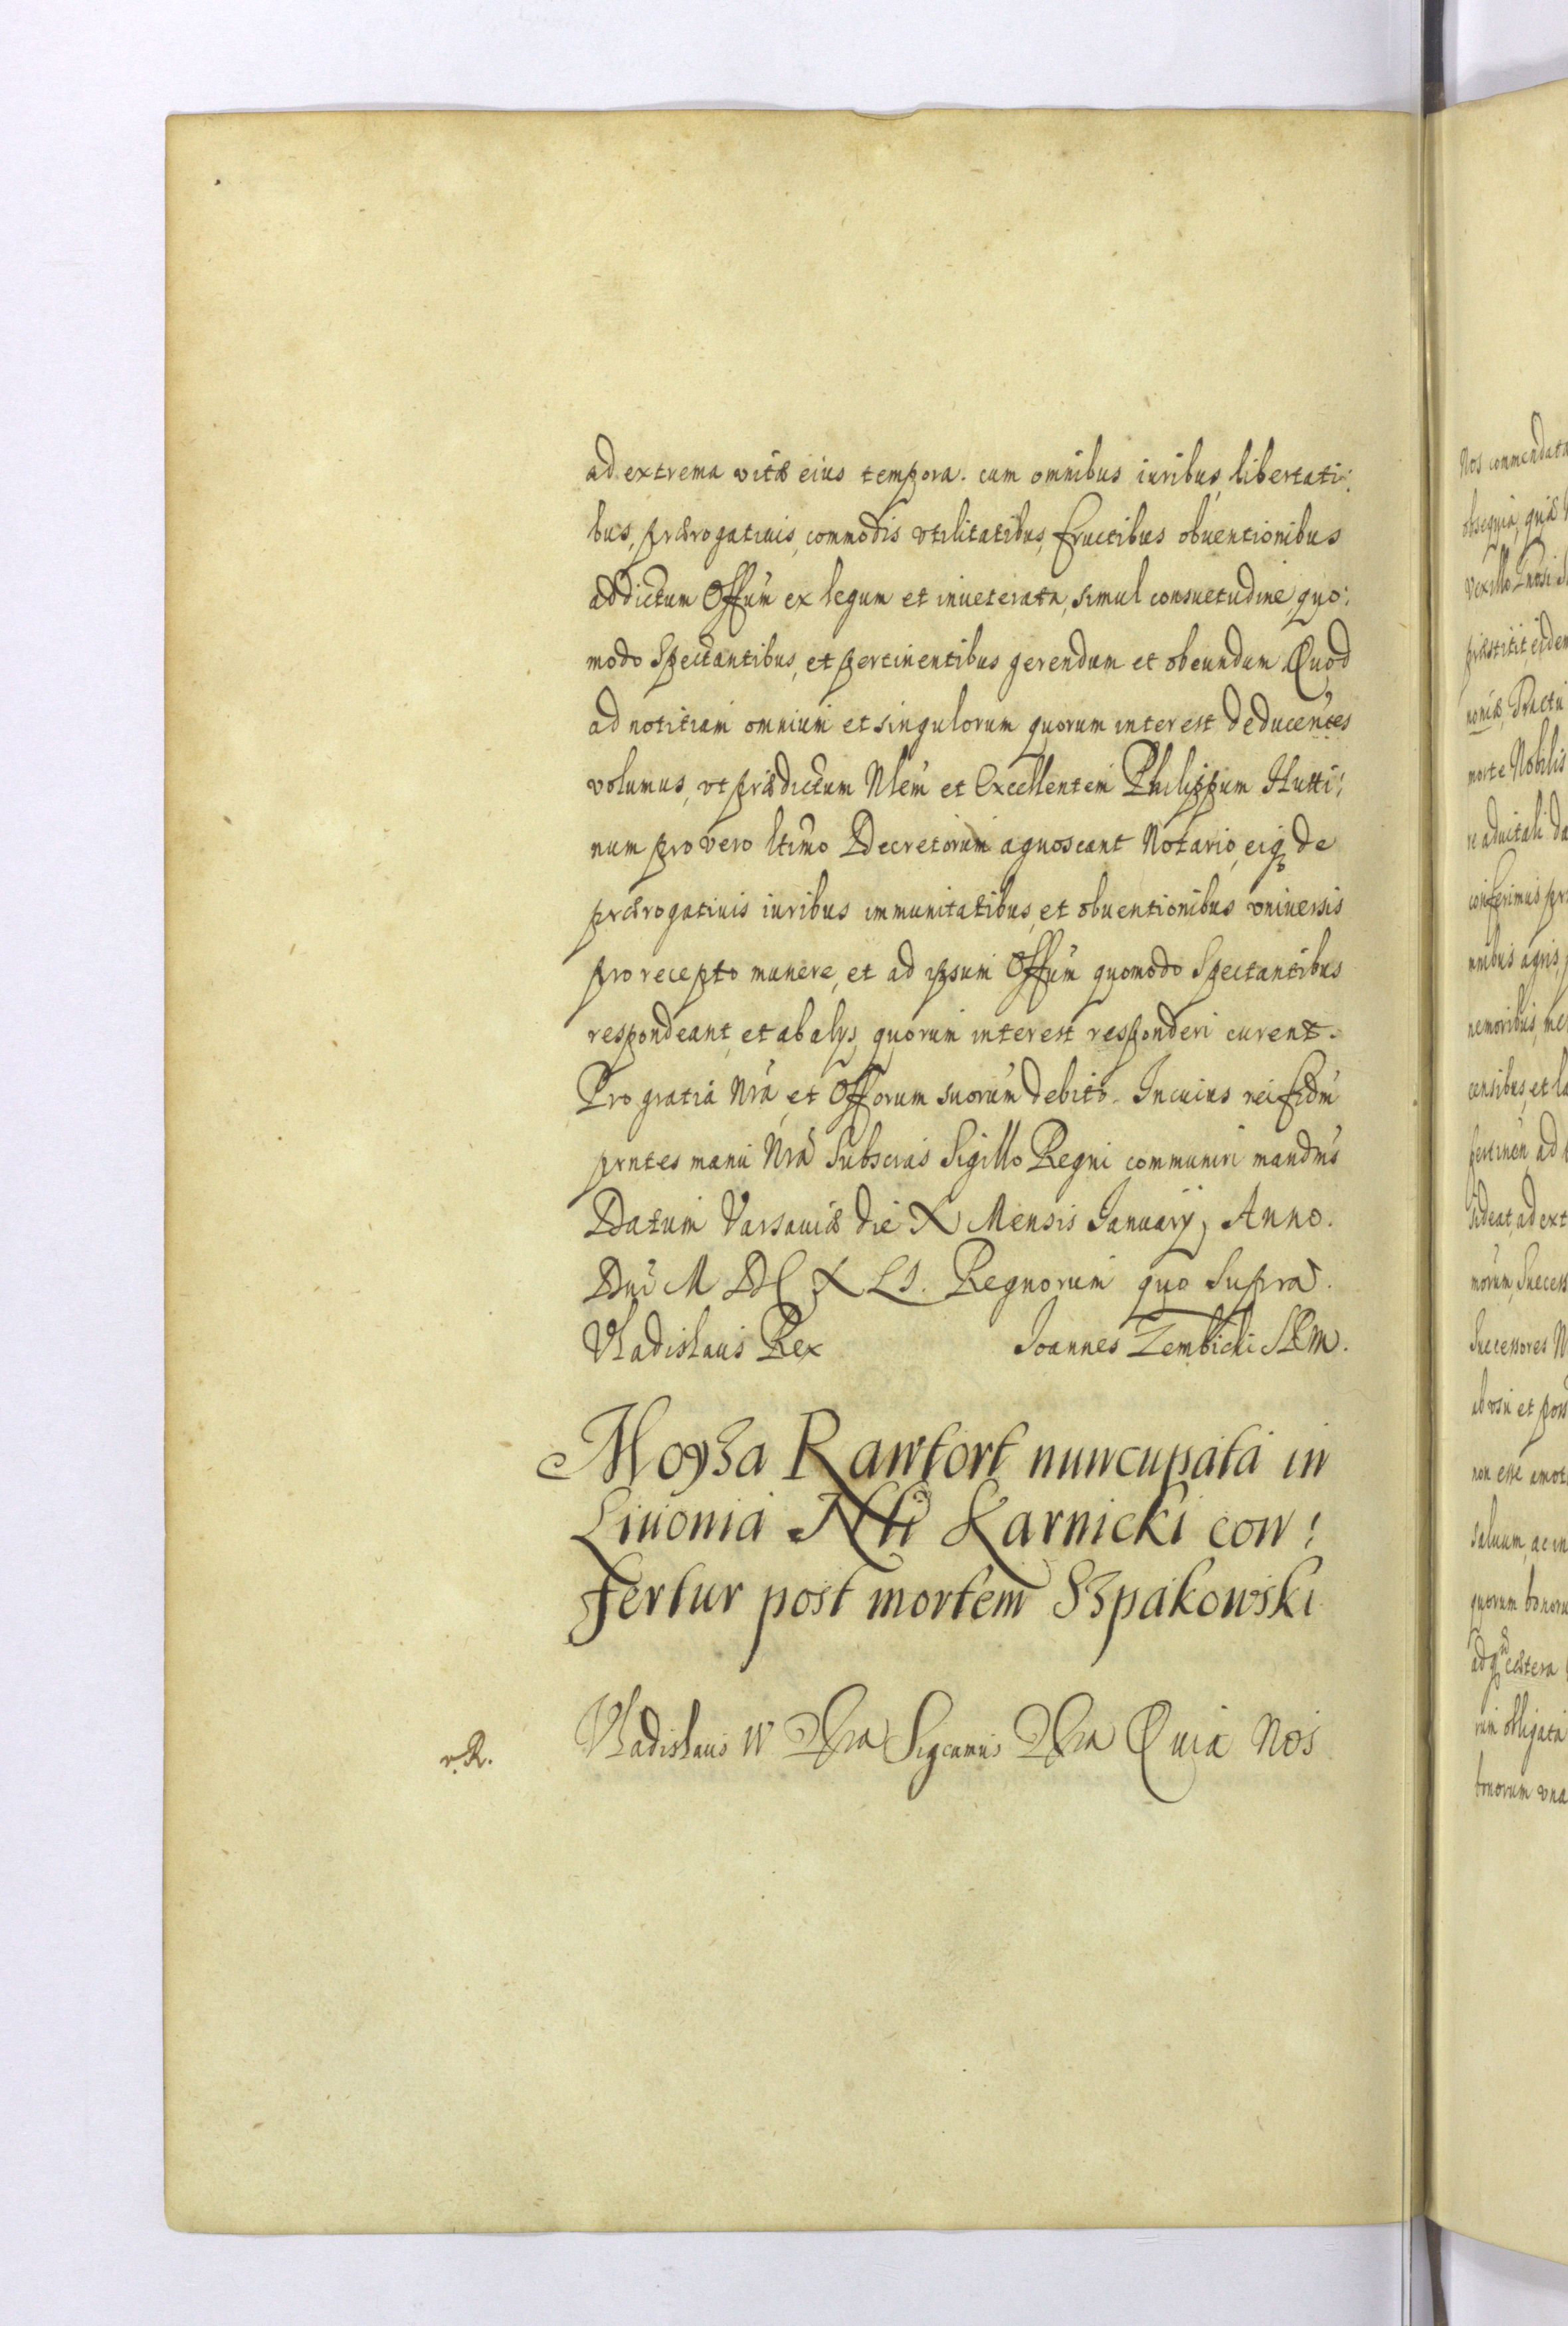 ad extrema vitæ eius tempora. cum omnibus iuribus, libertati:
bus, prærogatiuis, commodis vtilitatibus, fructibus obuentionibus
ad dictum Offũm ex legum et inueterata, simul consuetudine, quo:
modo Spectantibus, et pertinentibus gerendum et obeundum Quod
ad notitiam omnium et singulorum quorum interest deducentes
volumus, vt prædictum Nlem et Excellentem Philippum Hutti:
num pro vero ltimo Decretorum agnoscant Notario, eiq de
prærogatiuis iuribus immunitatibus, et obuentionibus vniuersis
pro recepto munere, et ad ipsum Offũm quomodo Spectantibus
respondeant, et ab alys, quorum interest responderi curent.
Pro gratia Nrã, et Offorum suorum debito. In cuius rei fidm
prntes manu Nrã Subscras Sigillo Regni communiri mandms
Datum Varsauiæ die X Mensis January, Anno.
Dni M DC XLI. Regnorum quo Supra.
Vladislaus Rex Joannes Zembicki SRM.
Moyza Rawtort nuncupata in
Liuonia Nli Karnicki con:
fertur post mortem Szpakowski
v. R. Vladislaus IV Dgra Sigcamus Dgra Quia Nos
Nos commendata
obsequia, quæ
Vexillo
præstitit, eidem
noniæ, Tractu
morte Nobilis
re aduitali da
conferimus pr
mnibus agris
nemoribus, me
censibus, et la
pertinen ad
sideat, ad ext
morum, Success
Successores N
ab vsu et poss
non esse amot
saluum, ac in
quorum bonoru
adq cætera
rum obligata
bonorum vna